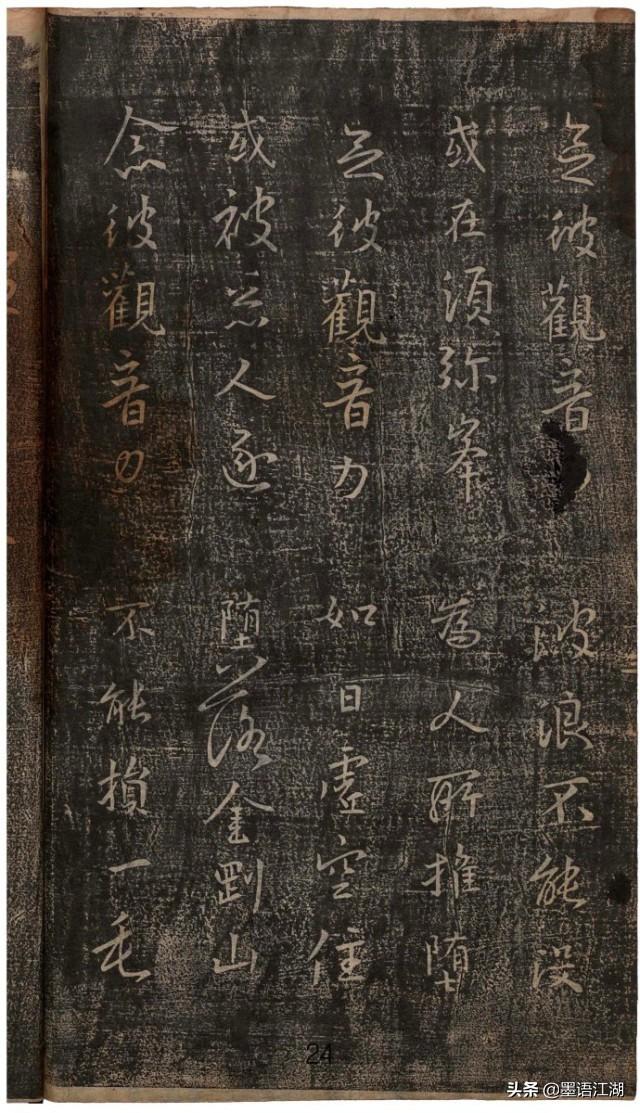 念彼觀音 波浪不能没
或在須弥峯 為人所推堕
念彼觀音力 如日虛空住
或被惡人逐 堕落金剛山
念彼觀音力 不能損一毛
24
头条 @墨语江湖